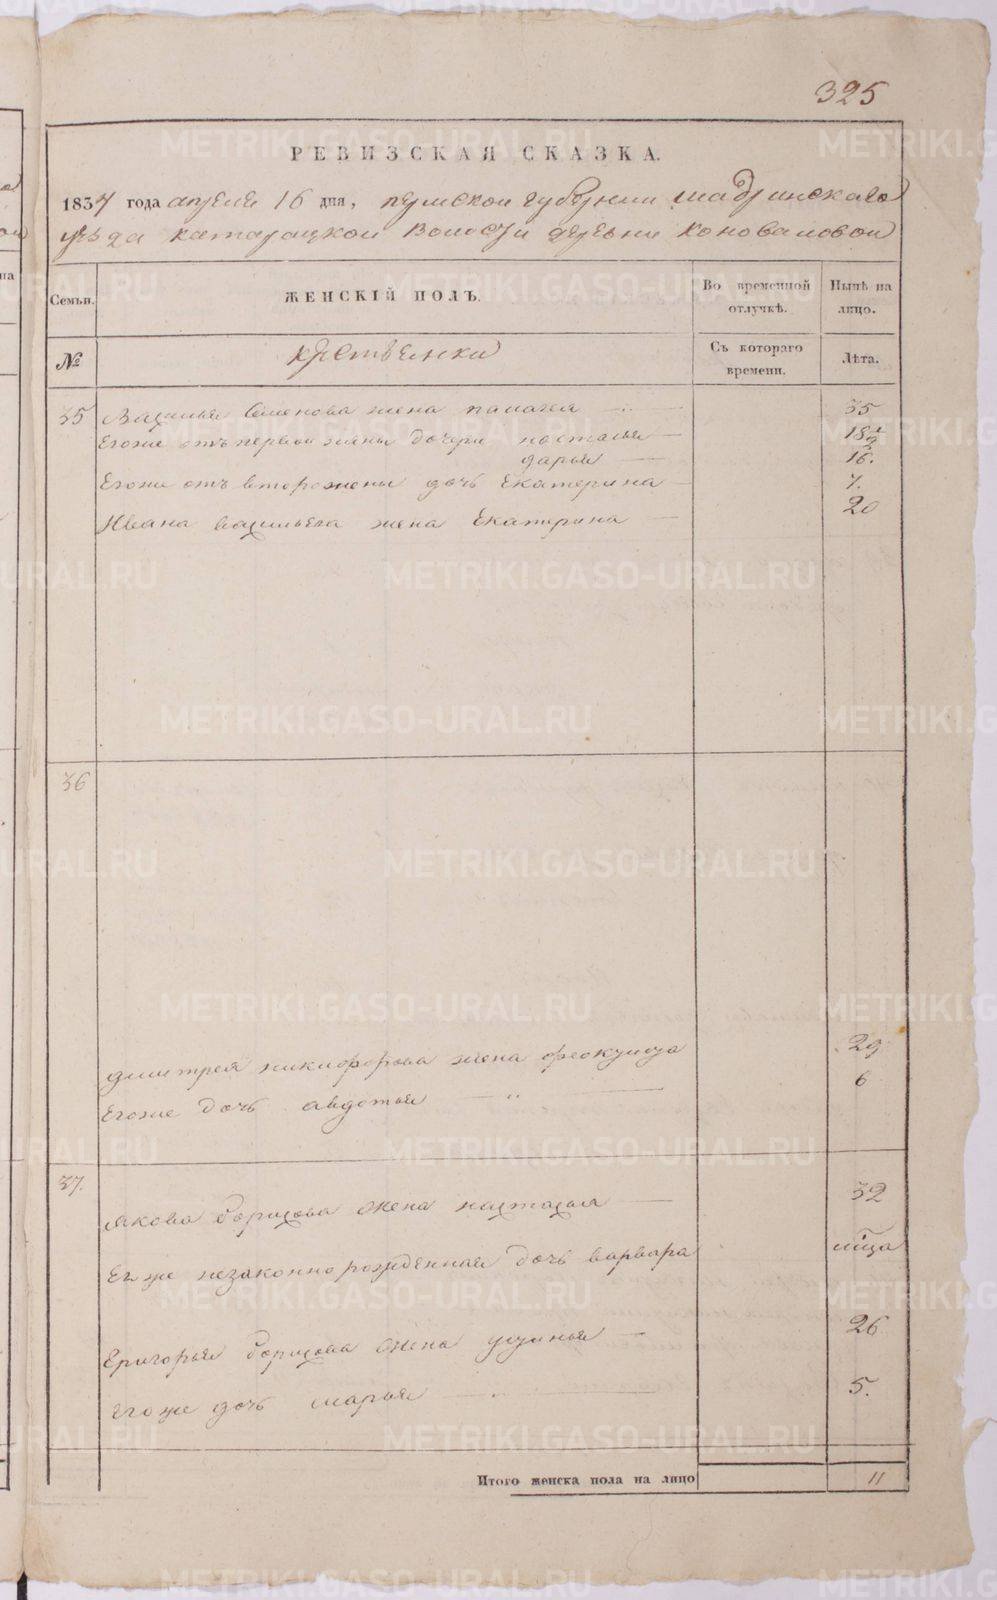 325
РЕВИЗСКАЯ СКАЗКА.
1834 года апреля 16 дня, пермской губернии шадринскаго
уезда катарацкой волости деревни коноваловой
Семьи. ЖЕНСКІЙ ПОЛЪ. Во временной отлучкѣ. Нынѣ на лицо.
№ крестьянки Съ котораго времени. Лѣта.
35 Василья Семенова жена палагея 35
Егоже отъ первой жены дочери настасья 18½
дарья 16.
Егоже отъ второй жены дочь Екатерина 7.
Ивана васильева жена Екатерина 20
36
дмитрея никифорова жена феоктиста 29
Егоже дочь авдотья 6
37. якова борисова жена настасья 32
Ея же незаконно рожденная дочь варвара
Григорья борисова жена устинья 26
Егоже дочь марья 5.
Итого женска пола на лицо 11
METRIKI.GASO-URAL.RU